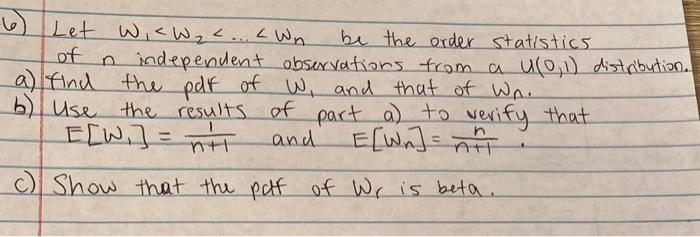 6) Let W₁ < W₂ < ... < Wn be the order statistics
of n independent observations from a U(0,1) distribution.
a) find the pdf of W₁ and that of Wn.
b) Use the results of part a) to verify that
E[W₁] = 1/n+1 and E[Wn] = n/n+1 .
c) Show that the pdf of Wr is beta.